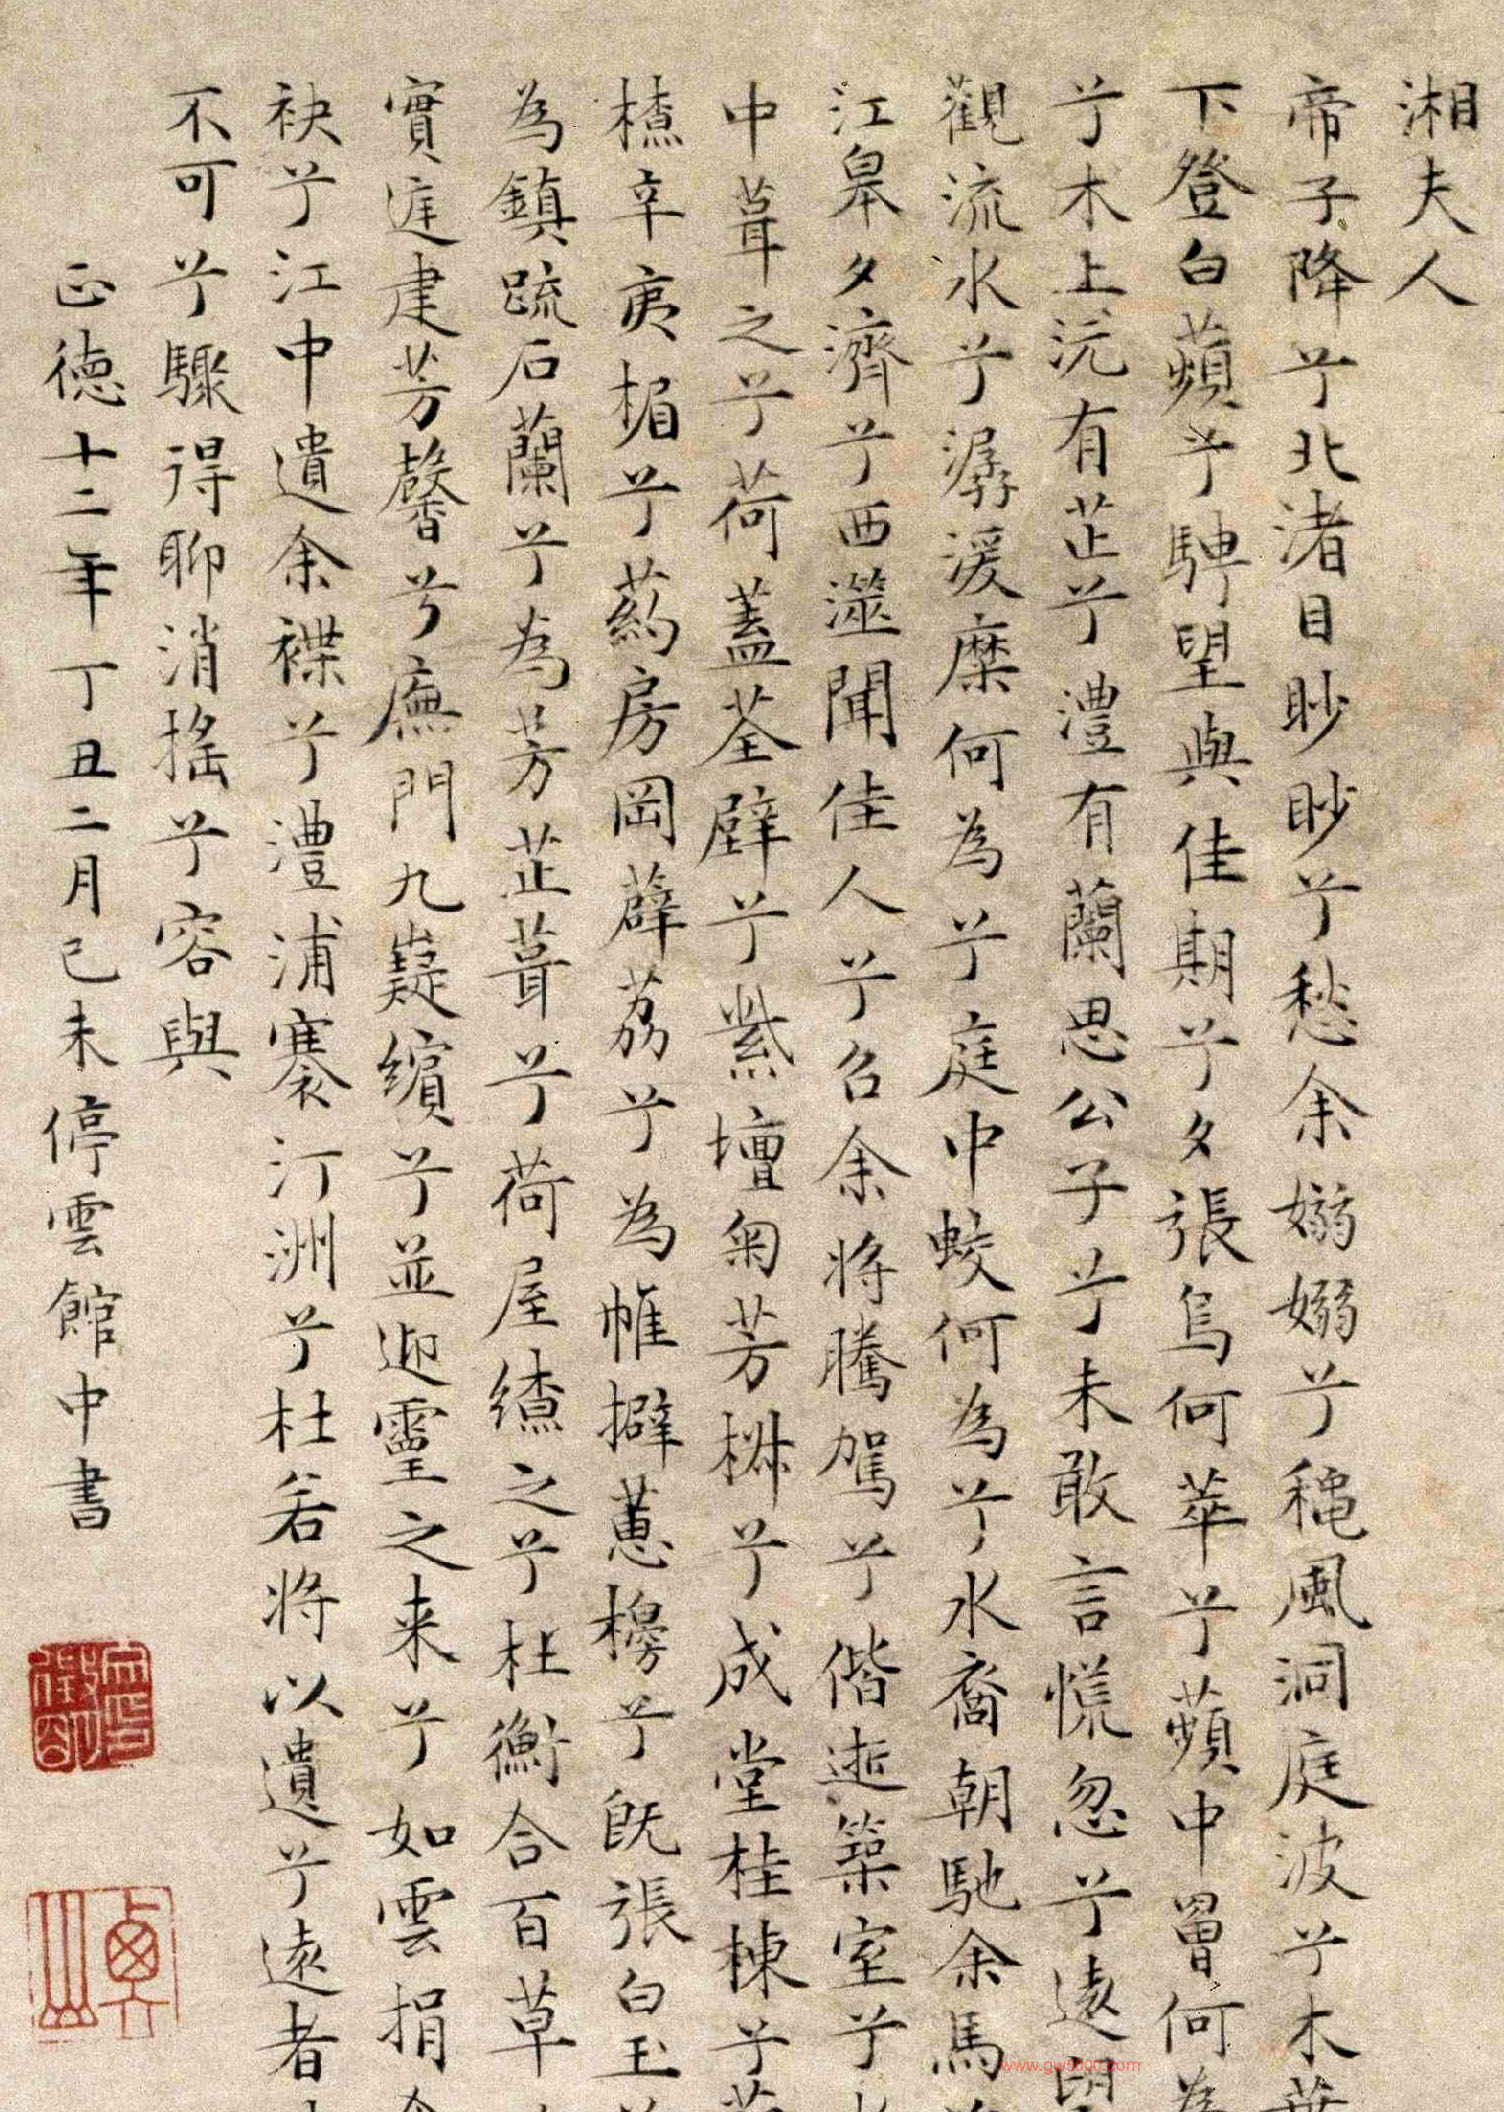 湘夫人
帝子降兮北渚目眇眇兮愁余嫋嫋兮穐風洞庭波兮木葉
下登白蘋兮騁望與佳期兮夕張鳥何萃兮蘋中罾何為
兮木上沅有芷兮澧有蘭思公子兮未敢言慌忽兮遠望
觀流水兮潺湲麋何為兮庭中蛟何為兮水裔朝馳余馬
江皋夕濟兮西澨聞佳人兮召余將騰駕兮偕逝築室兮
中葺之兮荷蓋荃壁兮紫壇匊芳椒兮成堂桂棟兮
橑辛夷楣兮葯房罔薜荔兮為帷擗蕙櫋兮既張白玉
為鎮疏石蘭兮為芳芷葺兮荷屋繚之兮杜衡合百草
實庭建芳馨兮廡門九嶷繽兮並迎靈之来兮如雲捐
袂兮江中遺余褋兮澧浦搴汀洲兮杜若将以遺兮遠者
不可兮驟得聊消搖兮容與
正德十二年丁丑二月己未停雲館中書
www.gw5000.com